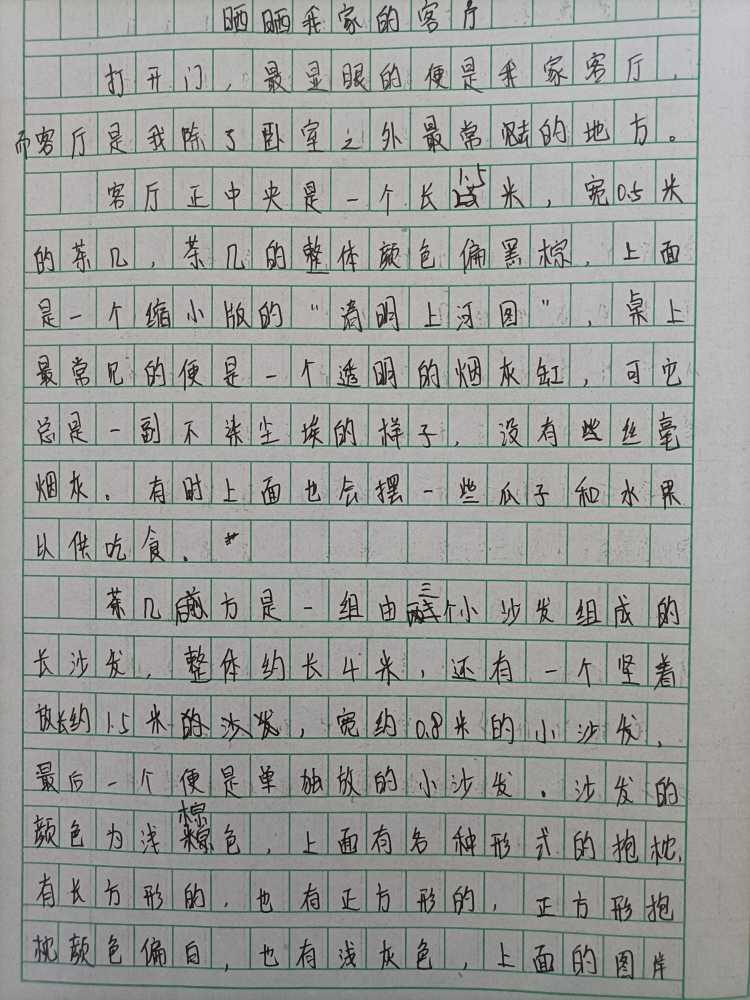 晒晒我家的客厅
打开门，最显眼的便是我家客厅，
而客厅是我除了卧室之外最常的地方。
客厅正中央是一个长1.5米，宽0.5米
的茶几，茶几的整体颜色偏黑棕，上面
是一个缩小版的“清明上河图”，桌上
最常见的便是一个透明的烟灰缸，可它
总是一副不染尘埃的样子，没有些丝毫
烟灰。有时上面也会摆一些瓜子和水果
以供吃食。
茶几后方是一组由三个小沙发组成的
长沙发，整体约长4米，还有一个坚着
放长约1.5米的沙发，宽约0.8米的小沙发，
最后一个便是单独放的小沙发。沙发的
颜色为浅棕色，上面有各种形式的抱枕，
有长方形的，也有正方形的，正方形抱
枕颜色偏白，也有浅灰色，上面的图片